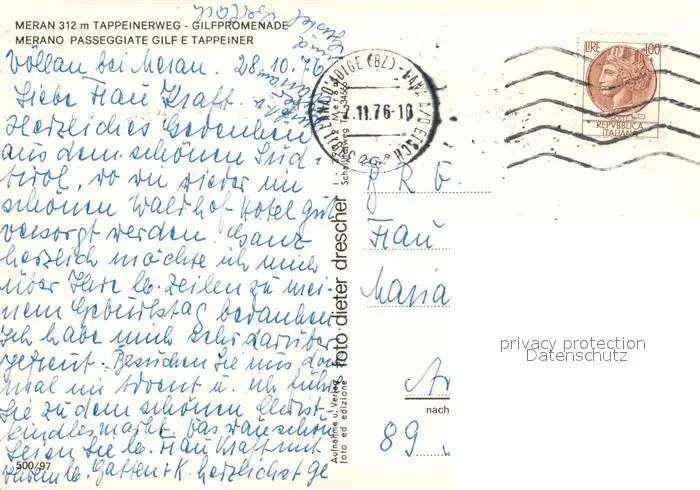 MERAN 312 m TAPPEINERWEG - GILFPROMENADE
MERANO PASSEGGIATE GILF E TAPPEINER
Völlan bei Meran. 28.10.76
Liebe Frau Kraft.
Herzliches Gedenken
aus dem schönen Süd-
tirol, wo wir wieder im
schönen Waldhof-Hotel gut
versorgt werden. Ganz
herzlich möchte ich mich
über Ihre lb. Zeilen zu mei-
nem Geburtstag bedanken
Ich habe mich sehr darüber
gefreut. Besuchen Sie uns doch
mal im Advent u. ich führ
Sie zu dem schönen Christ-
kindlesmarkt. Das wär schön
Seien Sie lb. Frau Kraft mit
Ihrem lb. Gatten + K. herzlichst ge
500/97
foto dieter drescher
Aufnahme u. Verlag
foto ed edizione
2.11.76-10
LIRE 100
REPVBBLICA
ITALIANA
B R D.
Frau
Maria
nach
89
privacy protection
Datenschutz